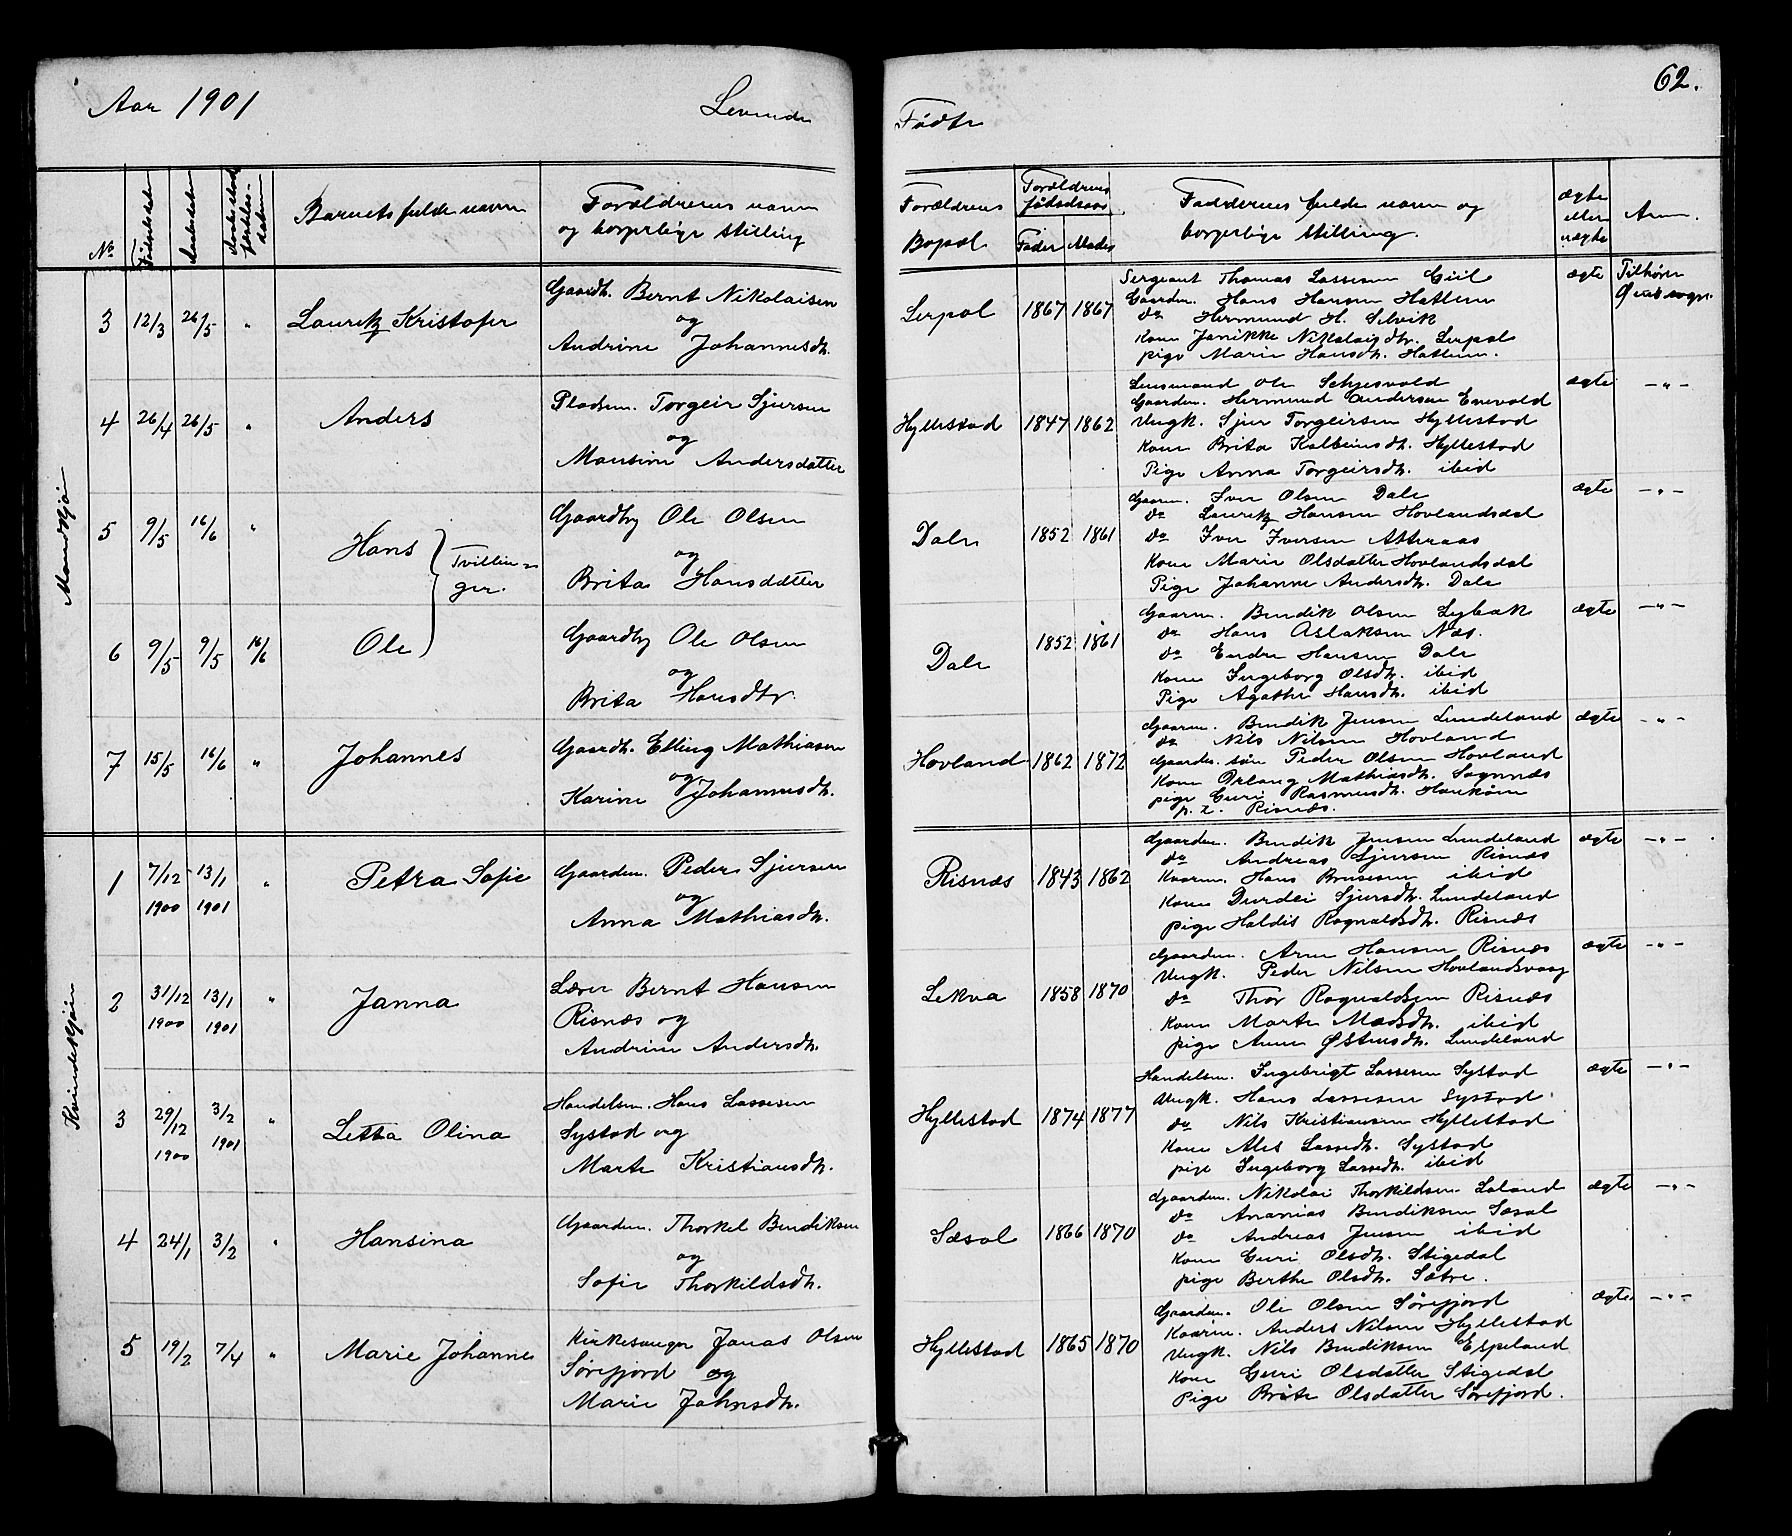 Aar 1901 Levende Fødte 62.
No Fødselsdatum Daabsdatum Barnets fulde navn Forældrenes navn og borgerlige stilling
Forældrenes Bopæl Forældrenes fødselsaar Fader Moder Faddernes fulde navn og borgerlige stilling. Ægte eller uægte Anm.
Mandkjøn
3 12/3 26/5 " Lauritz Kristofer
Gaardb. Bernt Nikolaisen
og
Andrine Johannesdtr.
Leirpol 1867 1867
Sergeant Thomas Lassesen Giil
Gaardm. Hans Hansen Hatlem
do Hermund H. Selvik
Kone Janikke Nikolaisdtr. Leirpol
pige Marie Hansdtr. Hatlem.
ægte Tilhører
sogn.
4 26/4 26/5 " Anders
Pladsm. Torgeir Sjursen
og
Monsine Andersdatter
Hyllestad 1847 1862
Lensmand Ole Schjesvold
Gaardm. Hermund Andersen Enevold
Ungk. Sjur Torgeirsen Hyllestad
Kone Brita Kolbeinsdtr. Hyllestad
Pige Anna Torgeirsdtr. ibid
ægte -"-
5 9/5 16/6 " Hans
Tvillin-
ger.
Gaardbr Ole Olsen
og
Brita Hansdatter
Dale 1852 1861
Gaarm. Iver Olsen Dale
do Lauritz Hansen Hovlandsdal
do Iver Iversen Atteraas
Kone Marie Olsdatter Hovlandsdal
Pige Johanne Andersdtr. Dale
ægte -"-
6 9/5 9/5 16/6 Ole
Gaardbr Ole Olsen
og
Brita Hansdtr.
Dale 1852 1861
Gaarm. Bendik Olsen Lybæk
do Hans Aslaksen Næs.
do Endre Hansen Dale
Kone Ingeborg Olsdtr. ibid
Pige Agathe Hansdtr. ibid
ægte -"-
7 15/5 16/6 " Johannes
Gaardb. Elling Mathiasen
og
Karine Johannesdtr.
Hovland 1862 1872
Gaarm. Bendik Jensen Lundeland
do Nils Nilsen Hovland
Gaardm. søn Peder Olsen Hovland
Kone Orlaug Mathiasdtr. Sognnæs
pige Guri Rasmusdtr. Haukøen
p. t. Risnæs.
ægte -"-
Kvindekjøn
1 7/12 1900 13/1 1901 " Petra Sofie
Gaardm. Peder Sjursen
og
Anna Mathiasdtr.
Risnæs 1843 1862
Gaardm. Bendik Jensen Lundeland
do Andreas Sjursen Risnæs
Kaarm. Hans Brusesen ibid
Kone Durdei Sjursdtr. Lundeland
pige Haldis Ragnaldsdtr. Risnæs
ægte -"-
2 31/12 1900 13/1 1901 " Janna
Lærer Bernt Hansen
Risnæs og
Andrine Andersdtr.
Lekva 1858 1870
Gaardm. Arne Hansen Risnæs
Ungk. Peder Nilsen Hovlandsvaag
do Thor Ragnaldsen Risnæs
Kone Marte Madsdtr. ibid
pige Anne Østensdtr. Lundeland
ægte -"-
3 29/12 1900 3/2 1901 " Letta Olina
Handelsm. Hans Lassesen
Systad og
Marte Kristiansdtr.
Hyllestad 1874 1877
Handelsm. Ingebrigt Lassesen Systad
Ungk. Hans Lassesen Systad
do Nils Kristiansen Hyllestad
Kone Ales Lassedtr. Systad
pige Ingeborg Lassedtr. ibid
ægte -"-
4 24/1 3/2 " Hansina
Gaardm. Thorkel Bendiksen
og
Sofie Thorkildsdtr.
Sæsol 1866 1870
Gaardm. Nikolai Thorkildsen Loland
do Ananias Bendiksen Sæsol
do Andreas Jensen ibid
Kone Guri Olsdtr. Stigedal
pige Berthe Olsdtr. Sætre.
ægte -"-
5 19/2 7/4 " Marie Johanne
Kirkesanger Jonas Olsen
Sørefjord og
Marie Johnsdtr.
Hyllestad 1865 1870
Gaardm. Ole Olsen Sørefjord
Kaarm. Anders Nilsen Hyllestad
Ungk. Nils Bendiksen Espeland
Kone Guri Olsdatter Stigedal
Pige Brite Olsdatter Sørefjord.
ægte. -"-